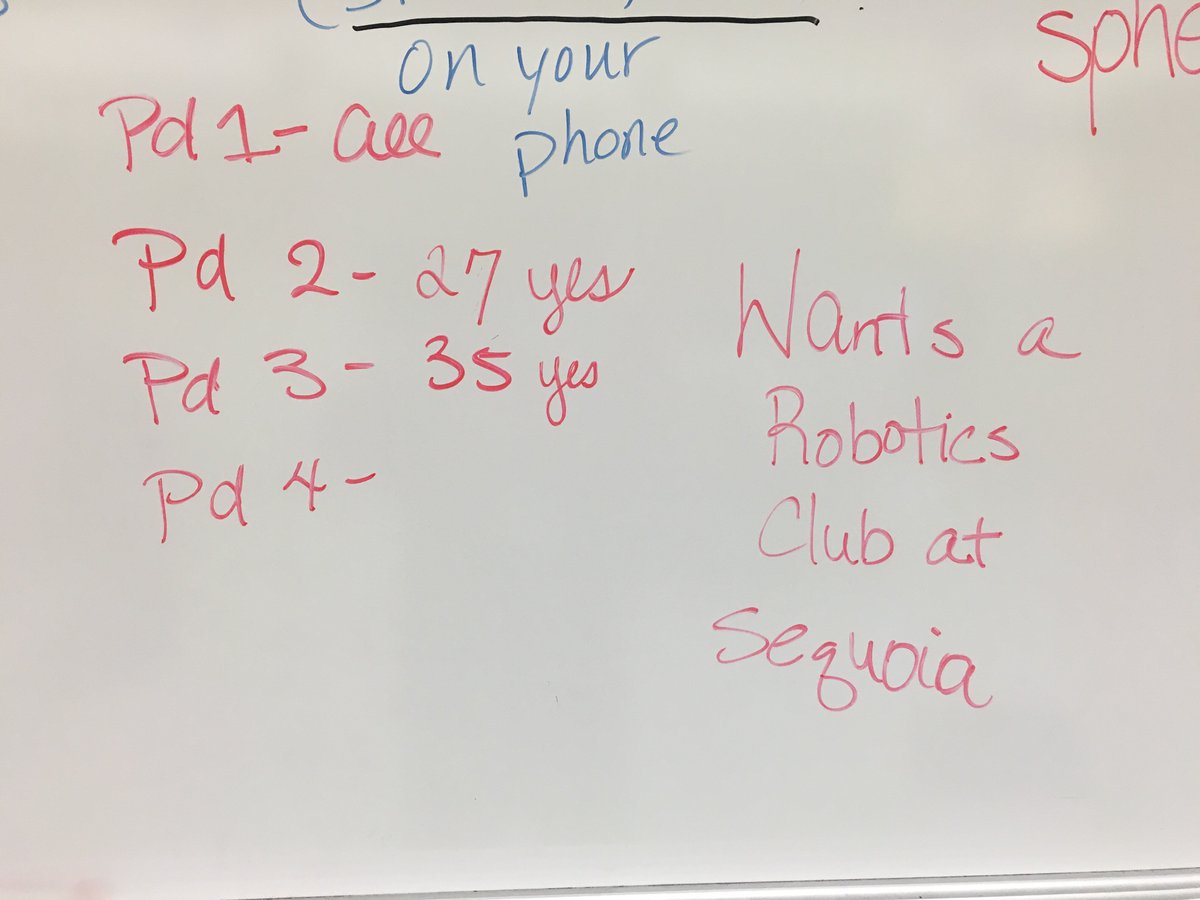 on your
phone
Pd 1- all
Pd 2- 27 yes
Pd 3- 35 yes
Pd 4-
Wants a
Robotics
Club at
Sequoia